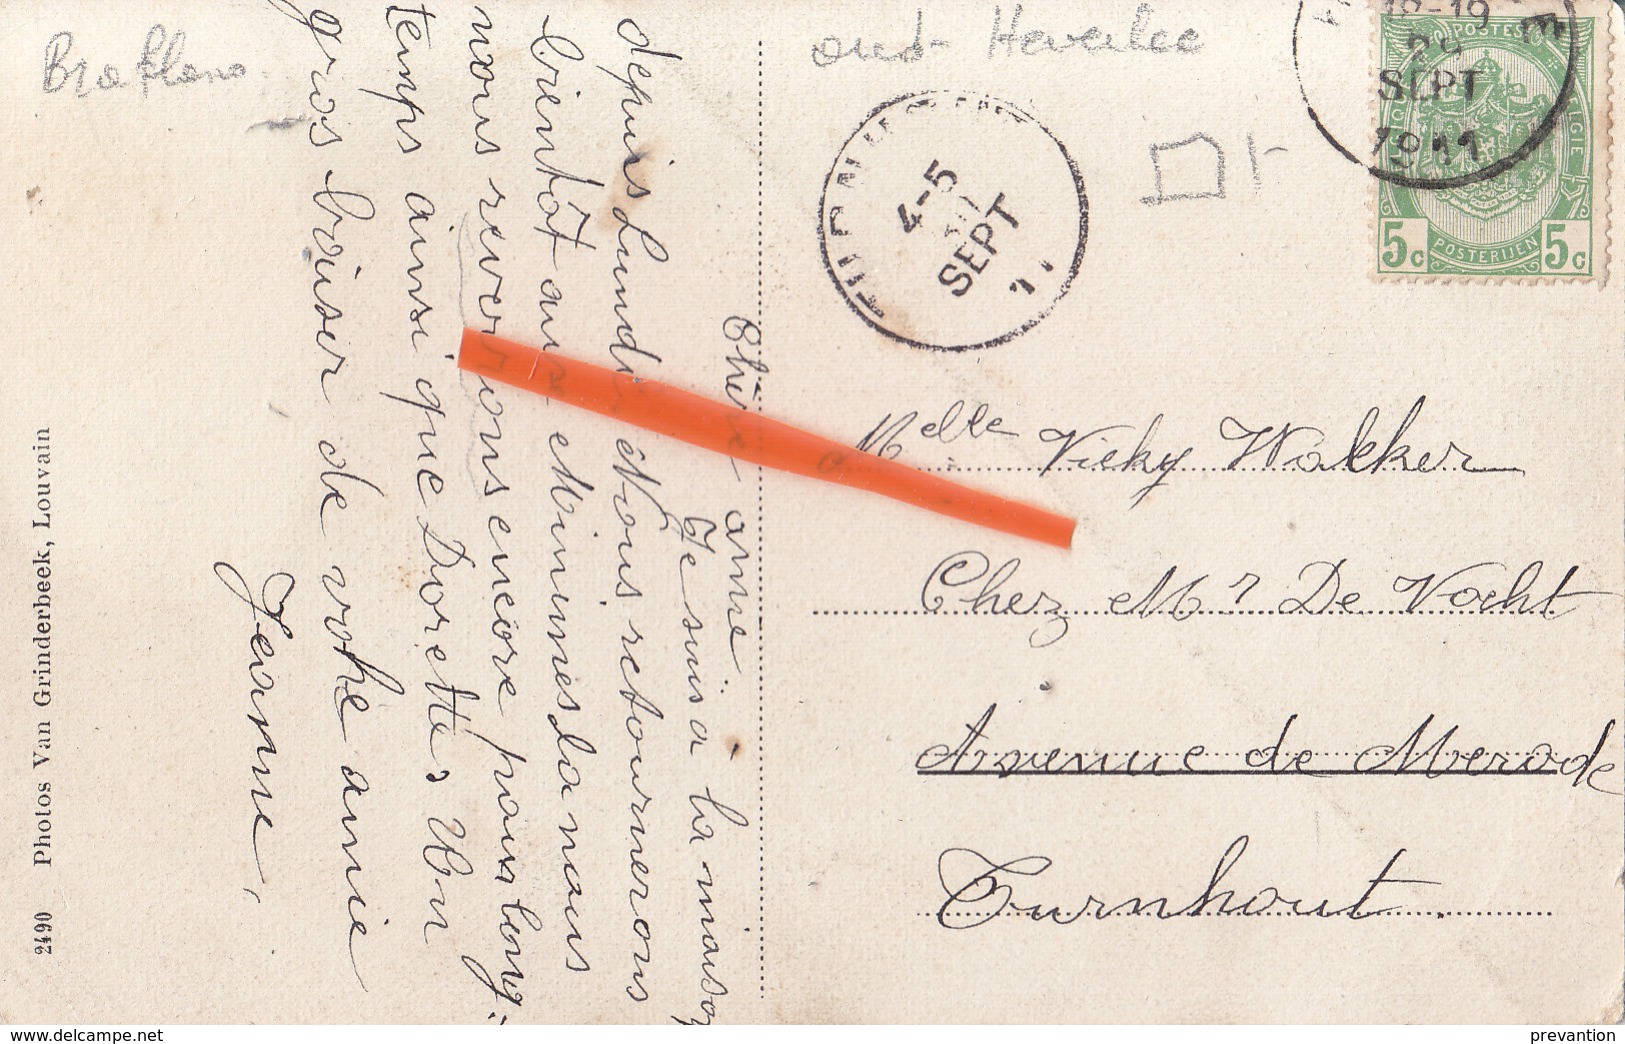 Brabant
oud-Heverlee
18-19
29
SEPT
1911
POSTES
BELGIQUE
BELGIE
5c POSTERIJEN 5c
TURNHOUT
4-5
SEPT
11
Chère amie.
Je suis a la maison
depuis Lundi. Nous retournerons
bientôt aux Minimes. La nous
nous reverrons encore pour long-
temps ainsi que Dorette. Un
gros baiser de votre amie
Jeanne,
Melle Vicky Wakker
Chez Mr De Vocht
Avenue de Merode
Turnhout.
2490 Photos Van Grinderbeek, Louvain
www.delcampe.net
prevantion